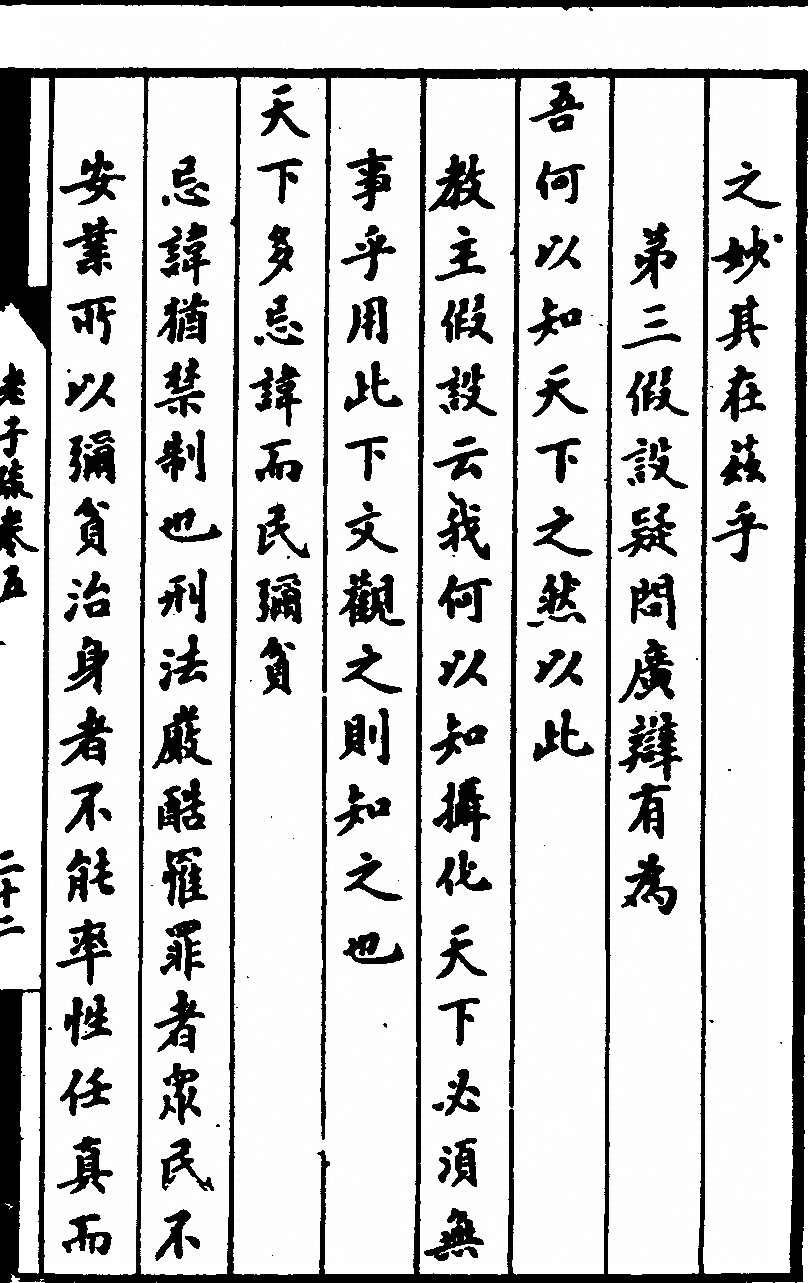 之妙其在茲乎
第三假設疑問廣辯有為
吾何以知天下之然以此
教主假設云我何以知攝化天下必須無
事乎用此下文觀之則知之也
天下多忌諱而民彌貧
忌諱猶禁制也刑法嚴酷罹罪者眾民不
安業所以彌貧治身者不能率性任真而
老子疏卷五
二十二